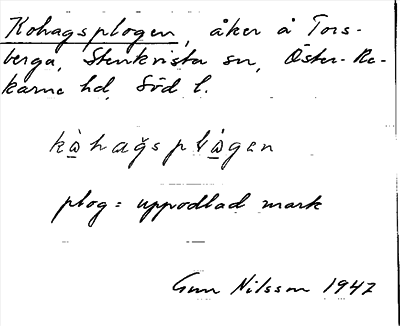 Kohagsplogen, åker å Tors-
berga, Stenkvista sn, Öster-Re-
karne hd, Söd l.
kàhağs plàgen
plog = uppodlad mark
Gun Nilsson 1947